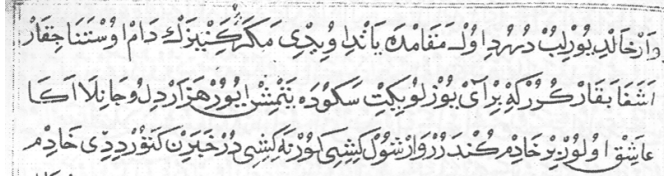 دُرُرْدِ اُولْ مَقَامْدَه يَاتْدِ اُويُدِي مَكَرْ كَنِيزَكْ دَامْ اُوسْتُنَا جِقَارْ
اَشَغَا بَقَارْ كُورَرْكِه بِرْ آيْ يُوزْلُو يِكِتْ سَكُودَه يَتْمِشْ يُوزْ هَزَارْ دِلُ وجَانِلَا اَكَا
عَاشِقْ اُولُورْ بِرْ خَادِمْ كُنْدَرُرْ وَارْ شُولْ كِشِيِى كُورْ نَه كِشِي دُرْ خَبَرِنْ كَتُورْ دِدِي خَادِمْ